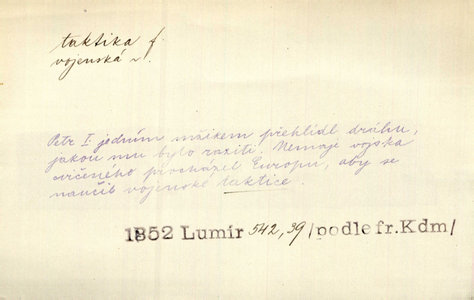 taktika f.
vojenská ~.
Petr I jedním mžikem přehlídl dráhu,
jakou mu bylo raziti. Nemaje vojska
cvičeného procházel Europu, aby se
naučil vojenské taktice.
1852 Lumír 542,39/podle fr.Kdm/